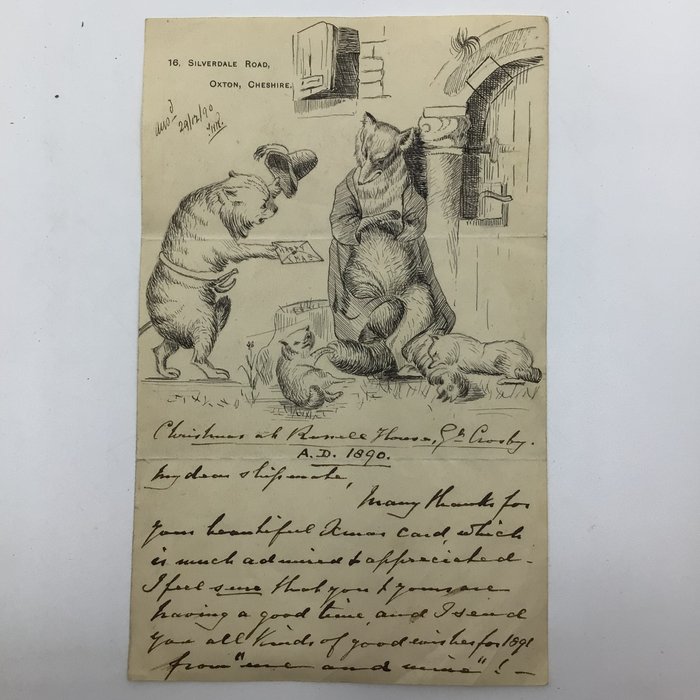 16. SILVERDALE ROAD,
OXTON, CHESHIRE.
ansd
29/12/90
Christmas at Russell House, Gt. Crosby.
A.D. 1890.
My dear shipmate,
Many thanks for
your beautiful Xmas card, which
is much admired & appreciated -
I feel sure that you & yours are
having a good time, and I send
you all kinds of good wishes for 1891
from "me and mine"! -